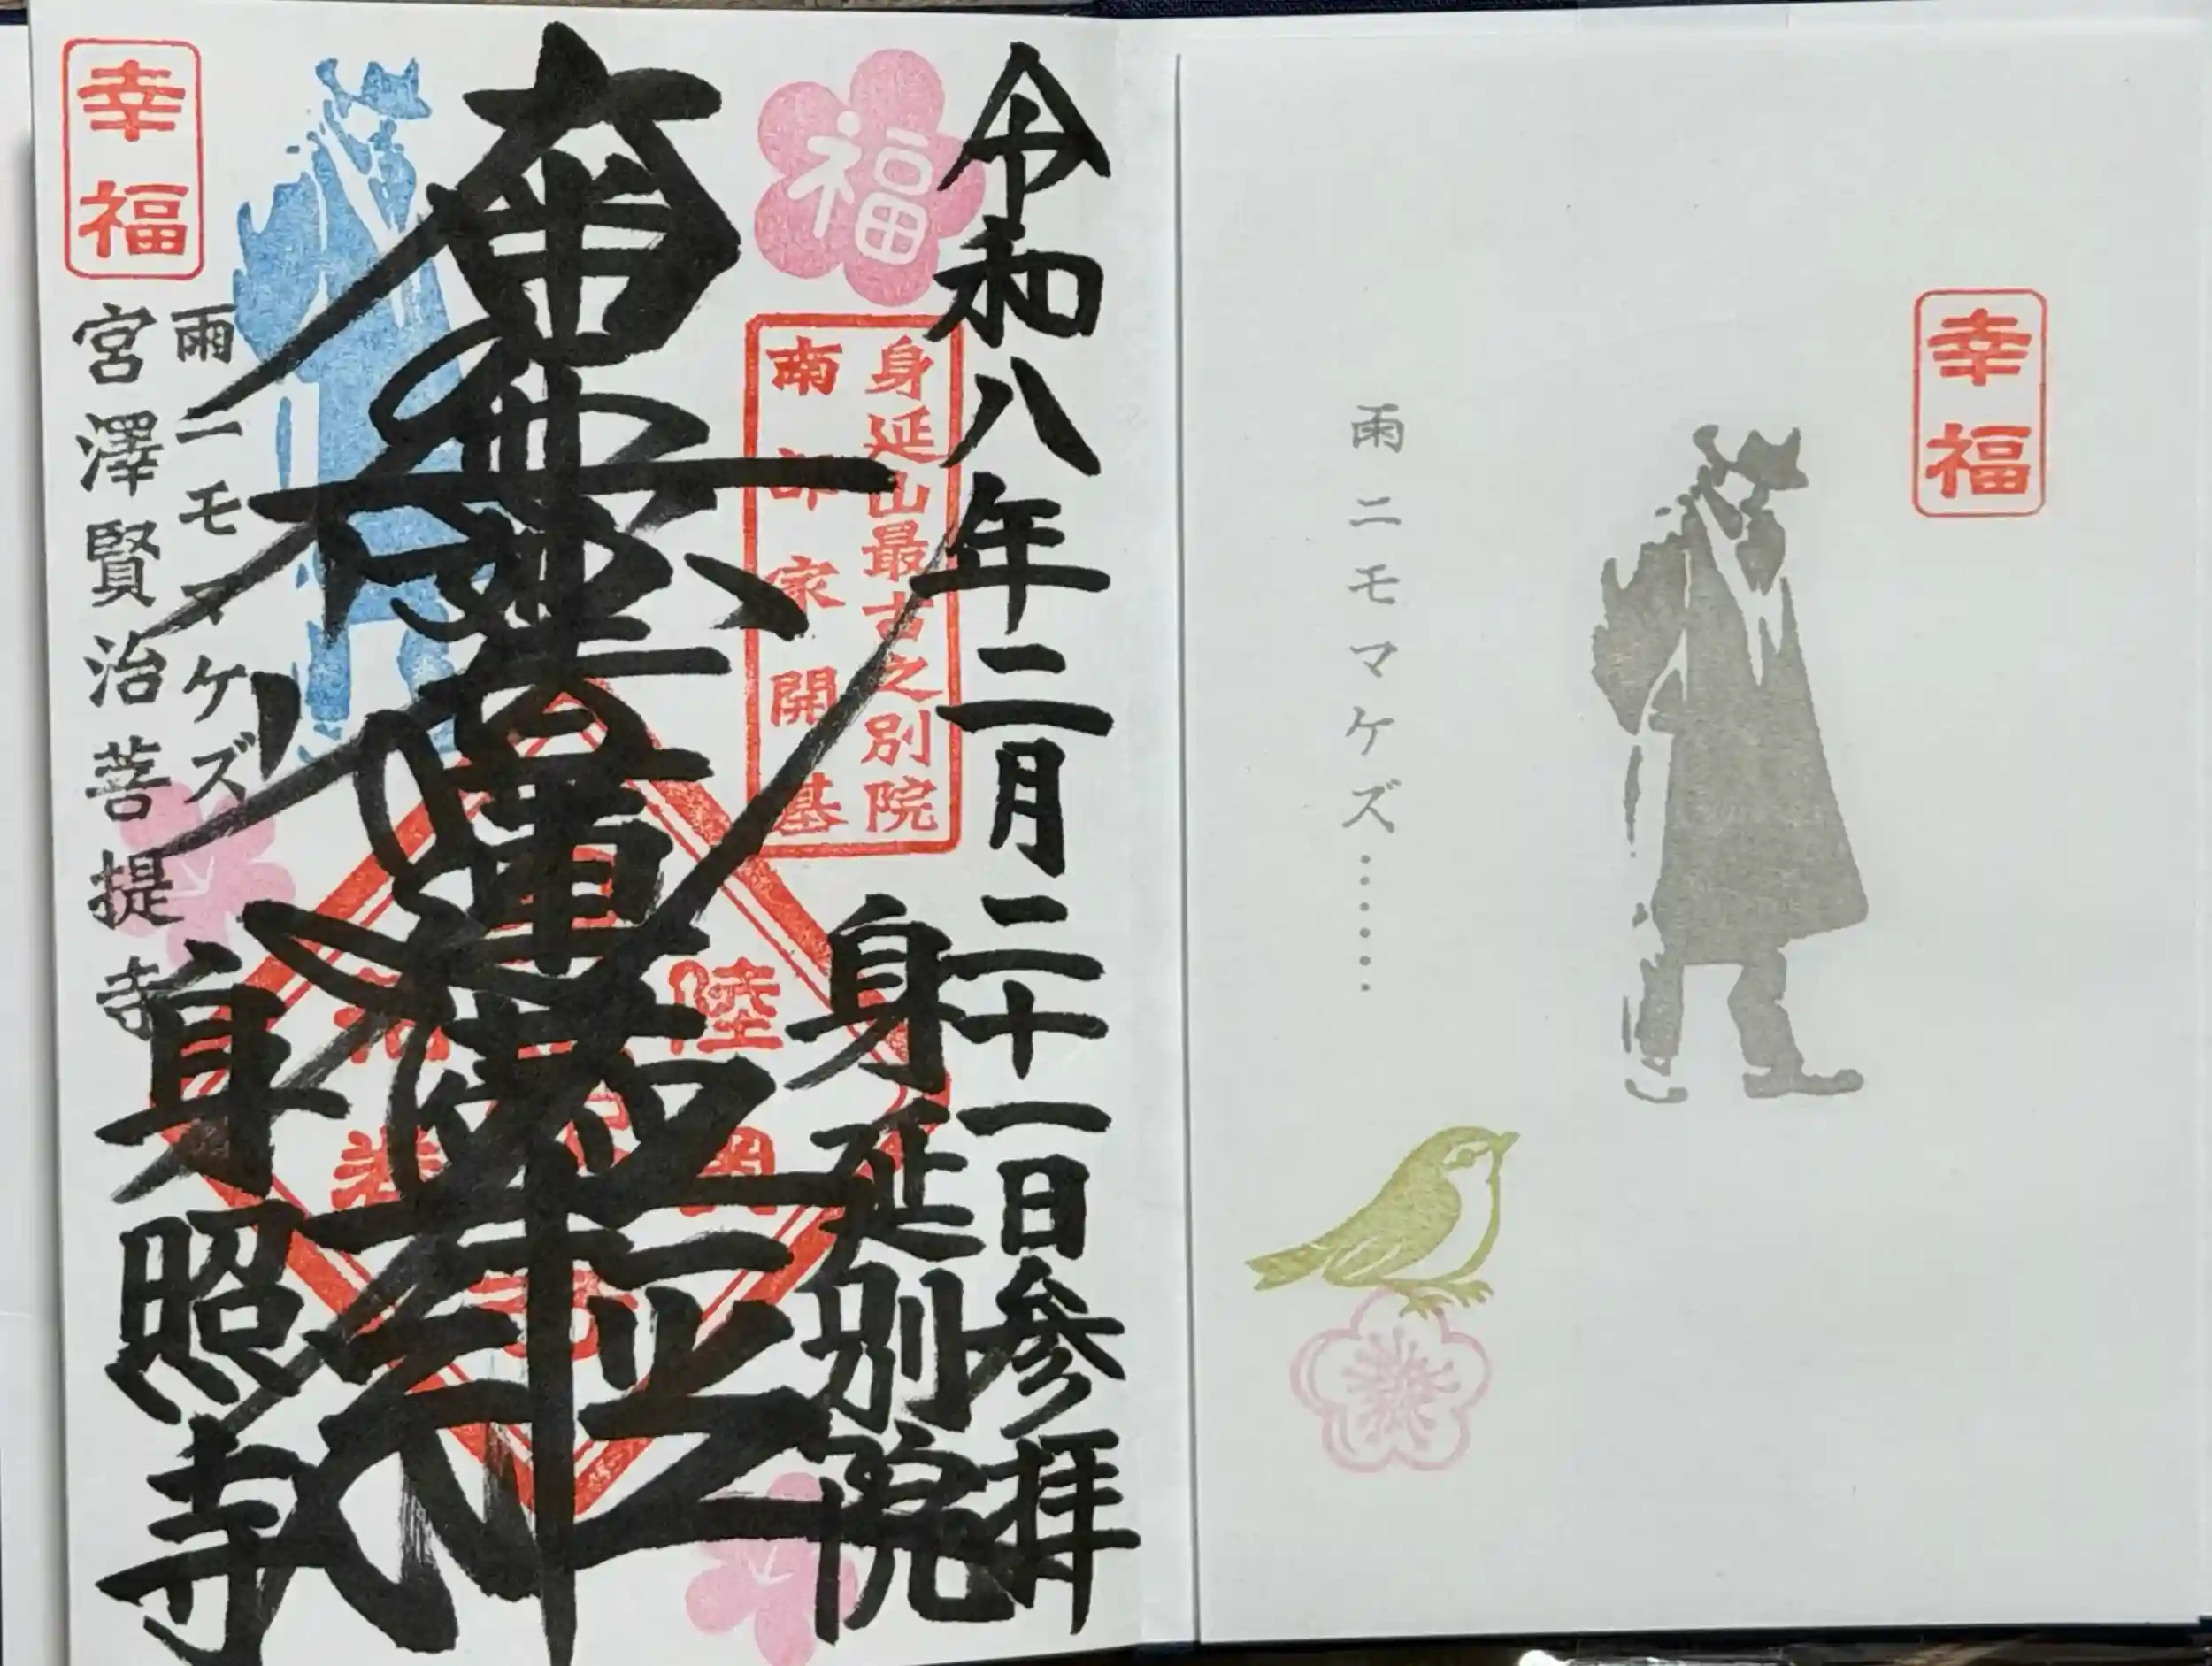 幸福
雨ニモマケズ………
令和八年二月二十一日参拝
身延別院
福
身延山最古之別院
南部家開基
南無妙法蓮華経
幸福
雨ニモマケズ
宮澤賢治菩提寺
身照寺